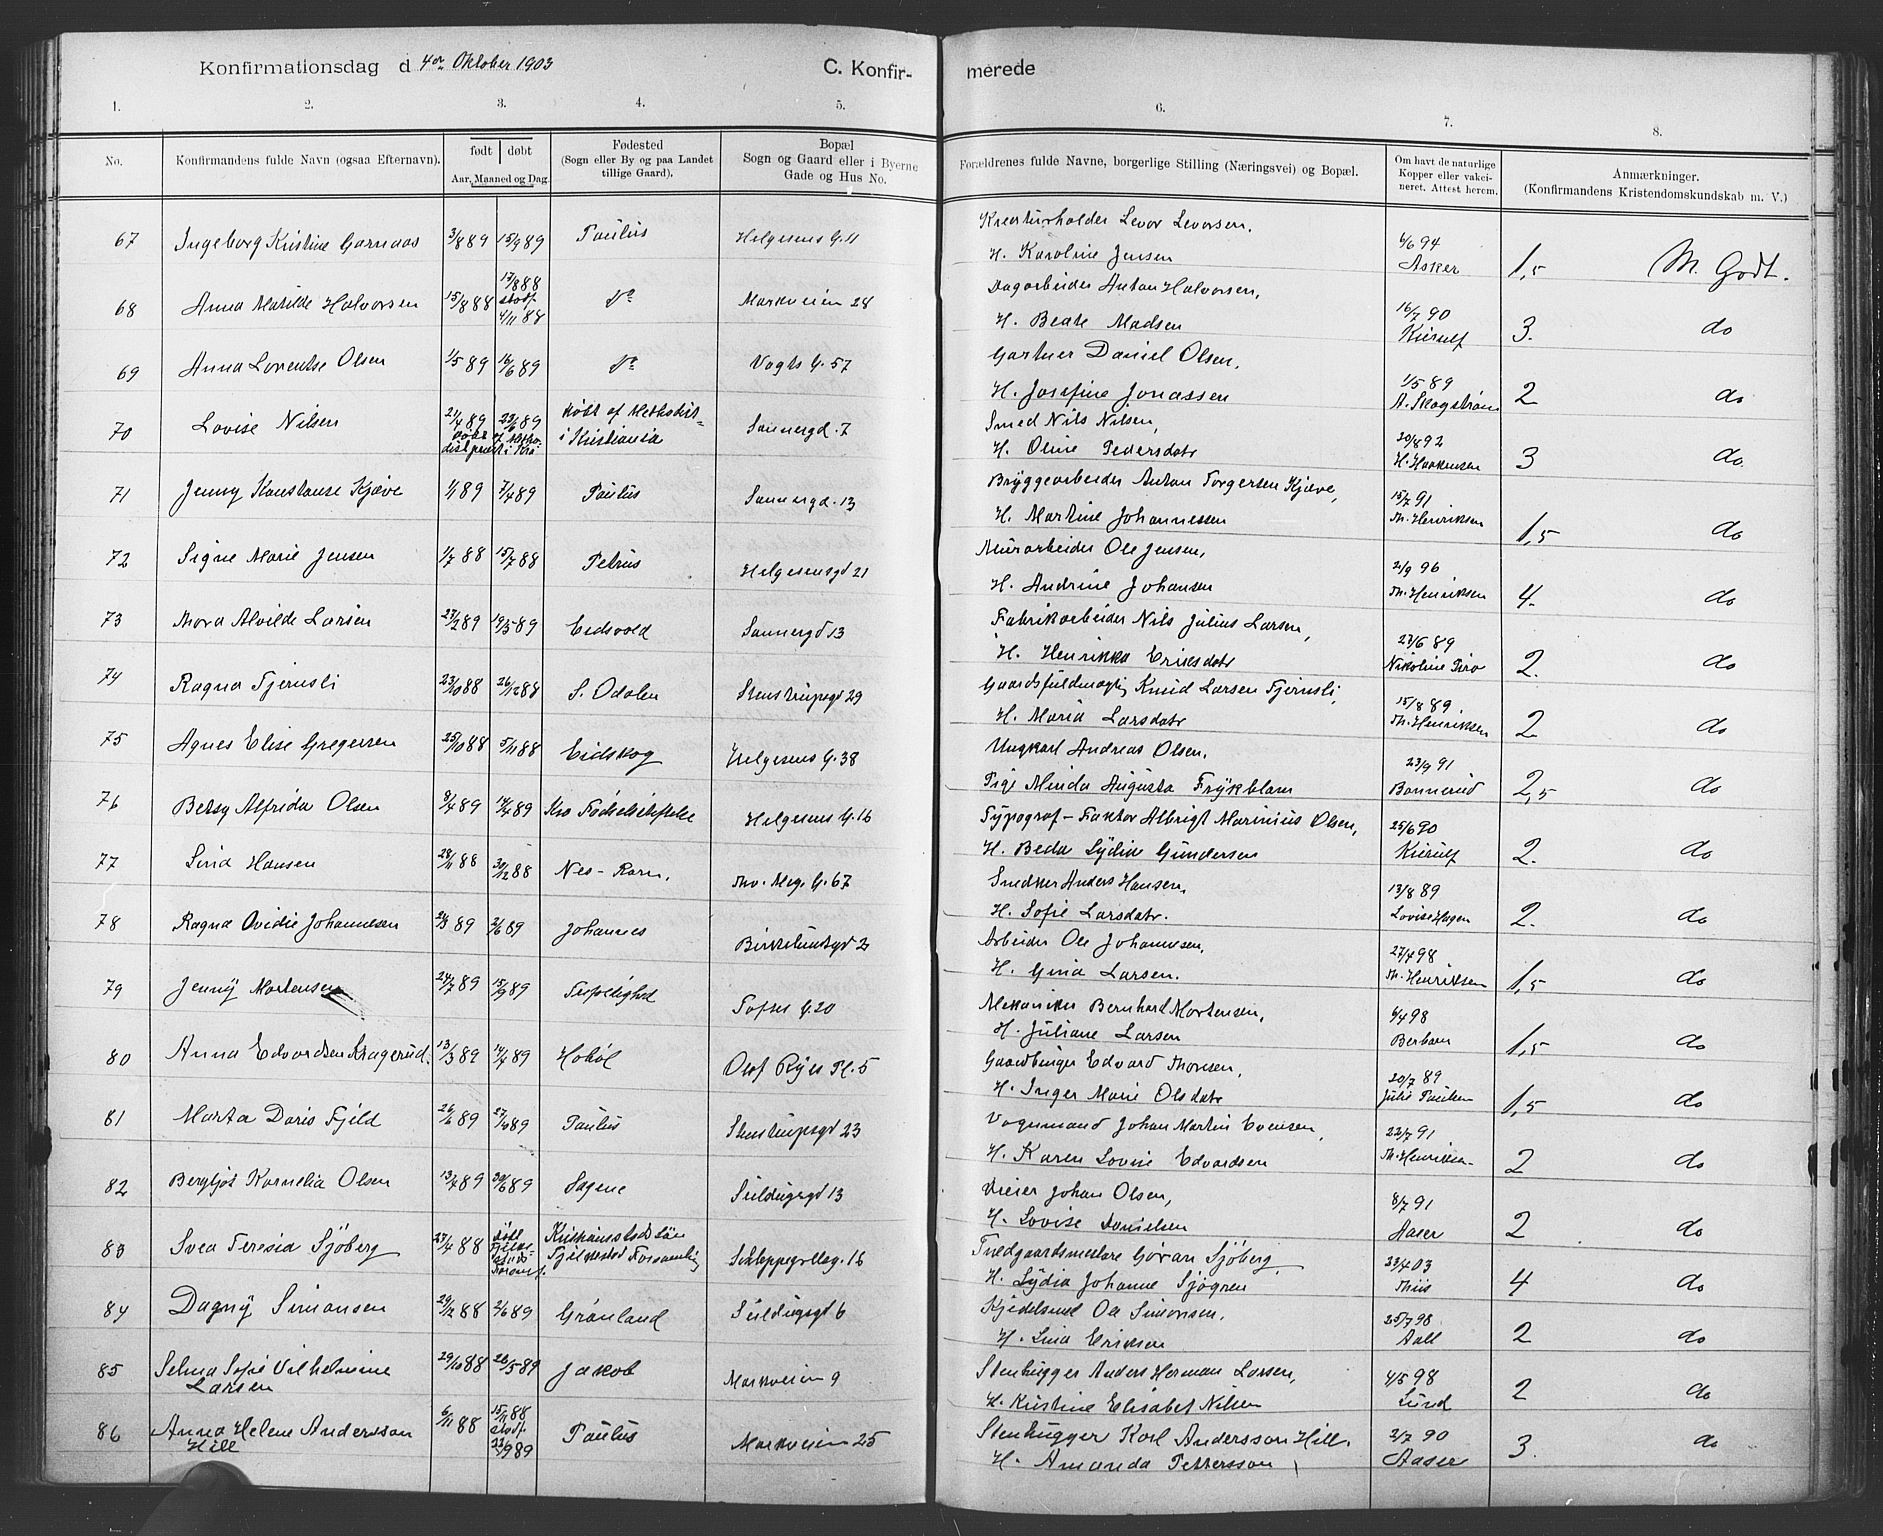 Konfirmationsdag d 4de Oktober 1903
C. Konfir-
merede
1. 2. 3. 4. 5. 6. 7. 8.
No.
Konfirmandens fulde Navn (ogsaa Efternavn).
født døbt
Aar, Maaned og Dag.
Fødested
(Sogn eller By og paa Landet
tillige Gaard).
Bopæl
Sogn og Gaard eller i Byerne
Gade og Hus No.
Forældrenes fulde Navne, borgerlige Stilling (Næringsvei) og Bopæl.
Om havt de naturlige
Kopper eller vakci-
neret. Attest herom.
Anmærkninger.
(Konfirmandens Kristendomskundskab m. V.)
67 Ingeborg Kristine Garnaas 3/8 89 15/9 89 Paulus Helgesens G. 11
Kreaturholder Levor Levorsen,
H. Karoline Jensen 6/6 94 Asker 1,5 M. Godt.
68 Anna Matilde Halvorsen 15/8 88 17/8 88 stadf. 4/11 88 do Markveien 28
Dagarbeider Anton Halvorsen,
H. Beate Madsen 16/7 90 Kierulf 3. do
69 Anna Lorentse Olsen 1/5 89 16/6 89 do Vogts G. 57
Gartner Daniel Olsen,
H. Josefine Jonassen 1/5 89 A. Skogstrøm 2 do
70 Lovise Nilsen 21/4 89 23/6 89 døbt af Methodist- i Kristiania Sannergd. 7
Smed Nils Nilsen,
H. Oline Pedersdatr 20/8 92 H. Haakensen 3 do
71 Jenny Konstanse Kjæve 1/1 89 7/4 89 Paulus Sannergd. 13
Bryggearbeider Anton Torgersen Kjæve,
H. Martine Johannessen 15/7 91 Th. Henriksen 1,5 do
72 Signe Marie Jensen 1/7 88 15/7 88 Petrus Helgesensgd 21
Murarbeider Ole Jensen,
H. Andrine Johansen 2/9 96 Th. Henriksen 4. do
73 Thora Alvilde Larsen 27/2 89 19/5 89 Eidsvold Sannergd 13
Fabrikarbeider Nils Julius Larsen,
H. Henrikka Eriksdatr 27/6 89 Nikoline Piro 2. do
74 Ragna Tjernsli 23/10 88 26/12 88 S. Odalen Stenstrupsgd 29
Gaardsfuldmægtig Knud Larsen Tjernsli,
H. Maria Larsdatr 15/8 89. Th. Henriksen 2 do
75 Agnes Elise Gregersen 25/10 88 5/11 88 Eidskog Helgesens G. 38
Ungkarl Andreas Olsen,
Pige Minda Augusta Frykblom 23/9 91 Bonnerud 2,5 do
76 Betsy Alfrida Olsen 8/4 89 14/4 89 Kra Fødselsstiftelse Helgesens G. 16
Typograf-Faktor Albrigt Marinius Olsen,
H. Beda Lydia Gundersen 25/6 90 Kierulf 2. do
77 Lina Hansen 28/11 88 30/12 88 Nes-Rom. Thv. Meg. G. 67
Snedker Anders Hansen,
H. Sofie Larsdatr. 13/8 89 Lovise Hagen 2. do
78 Ragna Ovidie Johannesen 24/3 89 2/6 89 Johannes Birkelundsgd 2
Arbeider Ole Johannesen,
H. Gina Larsen. 27/4 98 Th. Henriksen 1,5 do
79 Jenny Mortensen 24/7 89 15/9 89 Trefoldighed Toftes G. 20
Mekaniker Bernhard Mortensen,
H. Juliane Larsen 6/4 98 Berbom 1,5 do
80 Anna Edvardsen Kragerud. 13/3 89 14/4 89 Hobøl Olaf Ryes Pl. 5
Gaardbruger Edvard Thoresen,
H. Inger Marie Olsdatr 20/7 89 Julie Paulsen 1,5 do
81 Marta Doris Fjeld 26/6 89 27/10 89 Paulus Stenstrupsgd 23
Vognmand Johan Martin Evensen,
H. Karen Lovise Edvardsen 22/7 91 Th. Henriksen 2 do
82 Bergljot Kornelia Olsen 13/4 89 30/6 89 Sagene Seildugsgd 13
Dreier Johan Olsen,
H. Lovise Danielsen 8/7 91 Aaser 2 do
83 Svea Teresia Sjöberg 27/4 88 Kristianstads Län Fjelkestad Forsamling Schleppegrellsg. 16
Trædgaardsmestare Göran Sjöberg,
H. Lydia Johanne Sjögren 23/4 03 Thiis 4 do
84 Dagny Simonsen 29/12 88 2/6 89 Grønland Seildugsgd 6
Kjedelsmed Ole Simonsen,
H. Lina Eriksen 25/7 98 Aall 2 do
85 Selma Sofie Vilhelmine 29/10 88 26/5 89 Jakob Markveien 9
Larsen
Stenhugger Anders Herman Larsen,
H. Kristine Elisabet Nilsen 4/5 98 Lund 2 do
86 Anna Helene Andersson 6/11 88 15/11 88 stadf. 22/9 89 Paulus Markveien 25
Hill
Stenhugger Karl Andersson Hill.
H. Amanda Pettersson 2/7 90 Aaser 3. do